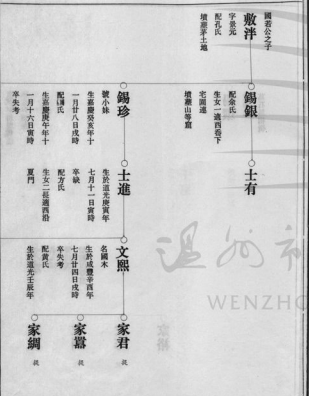 國若公之子
敷泮
字景元
配孔氏
墳蔴茅土地
錫銀
配余氏
生女一適西巷下
宅面連
墳蔴山等窟
士有
錫珍
號小妹
生嘉慶癸亥年十
一月廿八日戌時
生嘉慶庚午年十
一月十六日寅時
卒失考
士進
生於道光庚寅年
七月十一日寅時
卒缺
配方氏
生女二長適西沿
夏門
文熙
名國木
生於咸豐辛酉年
七月廿四日戌時
卒失考
配黃氏
生於道光壬辰年
家君
家囂
家綢
溫州市
WENZHO